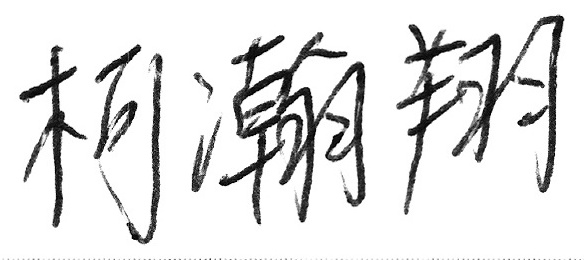 柯瀚翔